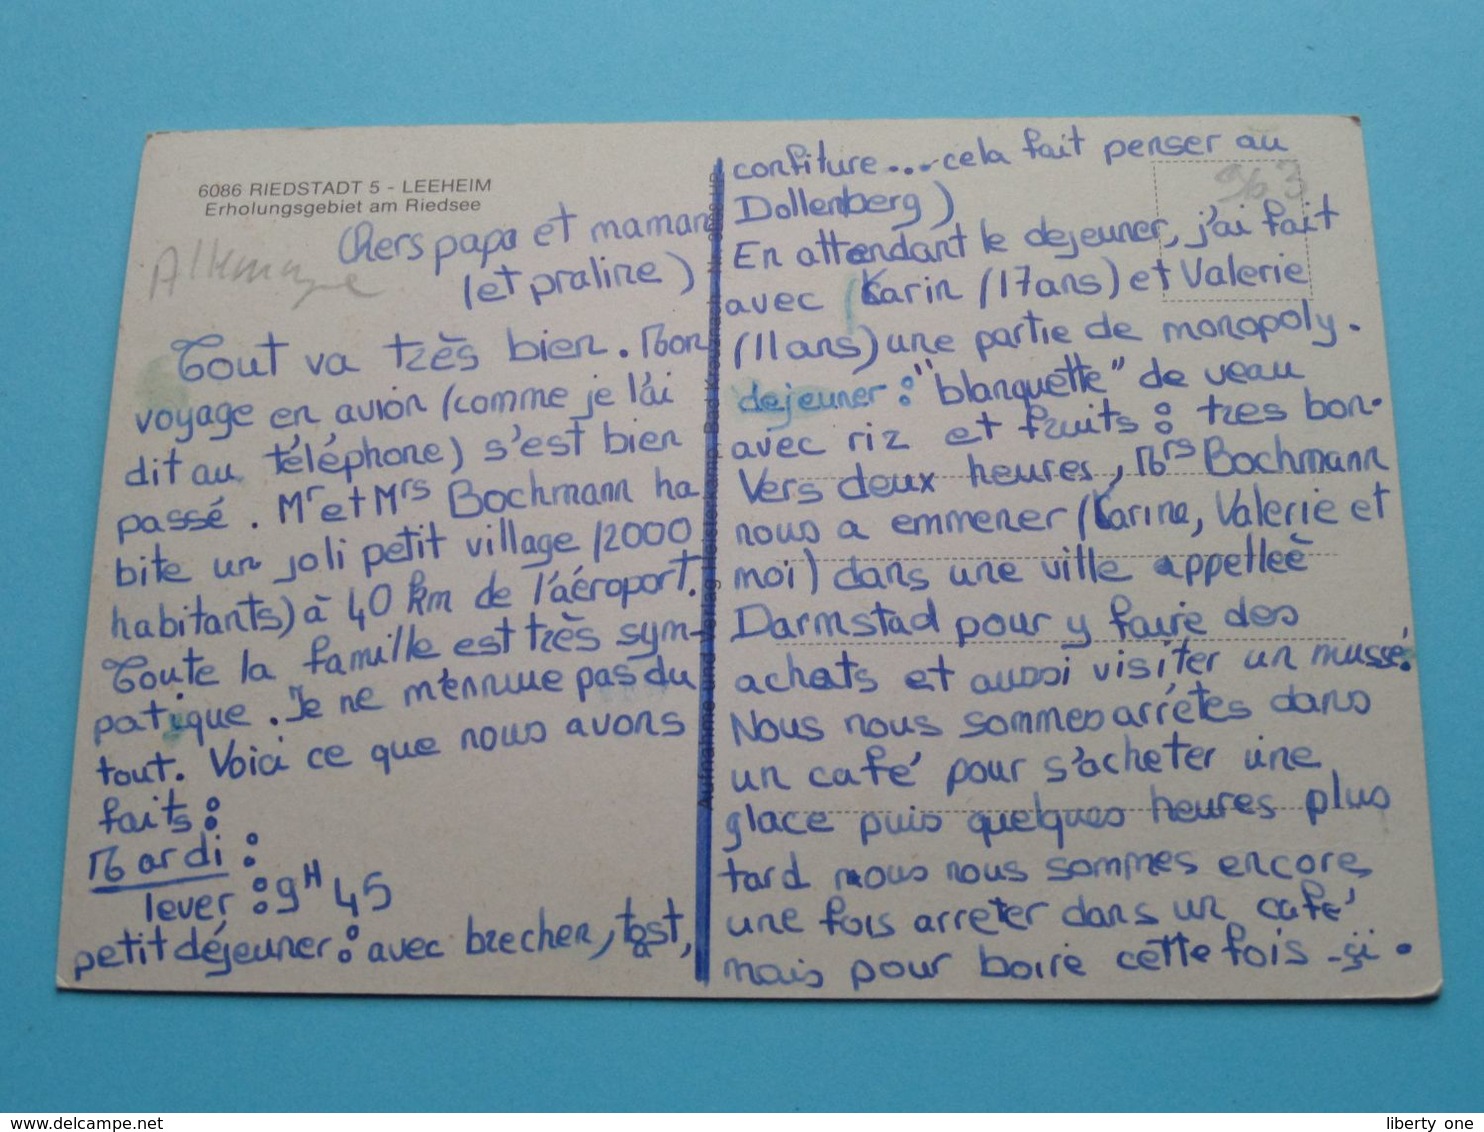 6086 RIEDSTADT 5 - LEEHEIM
Erholungsgebiet am Riedsee
Allemagne
Chers papa et maman
(et praline)
Tout va très bien. Mon
voyage en avion (comme je l'ai
dit au téléphone) s'est bien
passé. Mr et Mrs Bochmann ha
bite un joli petit village (2000
habitants) à 40 km de l'aéroport.
Toute la famille est très sym-
patique. Je ne m'ennuie pas du
tout. Voici ce que nous avons
faits :
Mardi :
lever : 9H 45
petit déjeuner : avec brechen, tost,
Aufnahme und Verlag
Bad Kreuznach
confiture... cela fait penser au
Dollenberg)
En attendant le dejeuner, j'ai fait
avec (Karin (17ans) et Valerie
(11ans) une partie de monopoly.
dejeuner : "blanquette" de veau
avec riz et fruits : tres bon.
Vers deux heures, Mrs Bochmann
nous a emmener (Karine, Valerie et
moi) dans une ville appelleè
Darmstad pour y faire des
achats et aussi visiter un mussé.
Nous nous sommes arrétes dans
un café pour s'acheter une
glace puis quelques heures plus
tard nous nous sommes encore
une fois arreter dans un café
mais pour boire cette fois-çi.
963
www.delcampe.net
liberty one